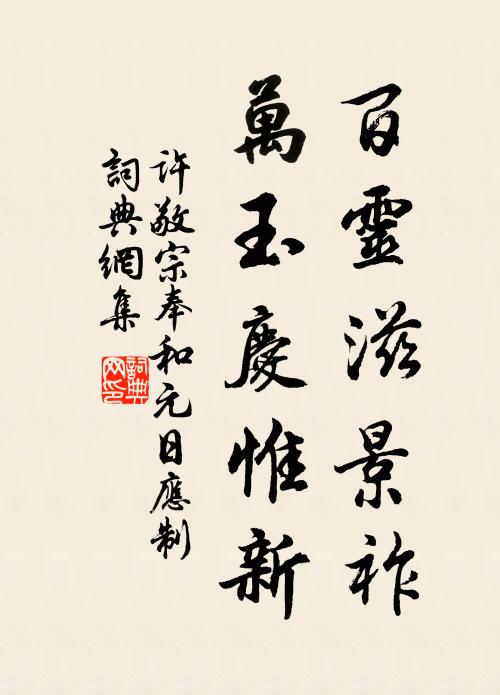 百靈滋景祚
萬玉慶惟新
許敬宗奉和元日應制
詞典網集
詞典網印